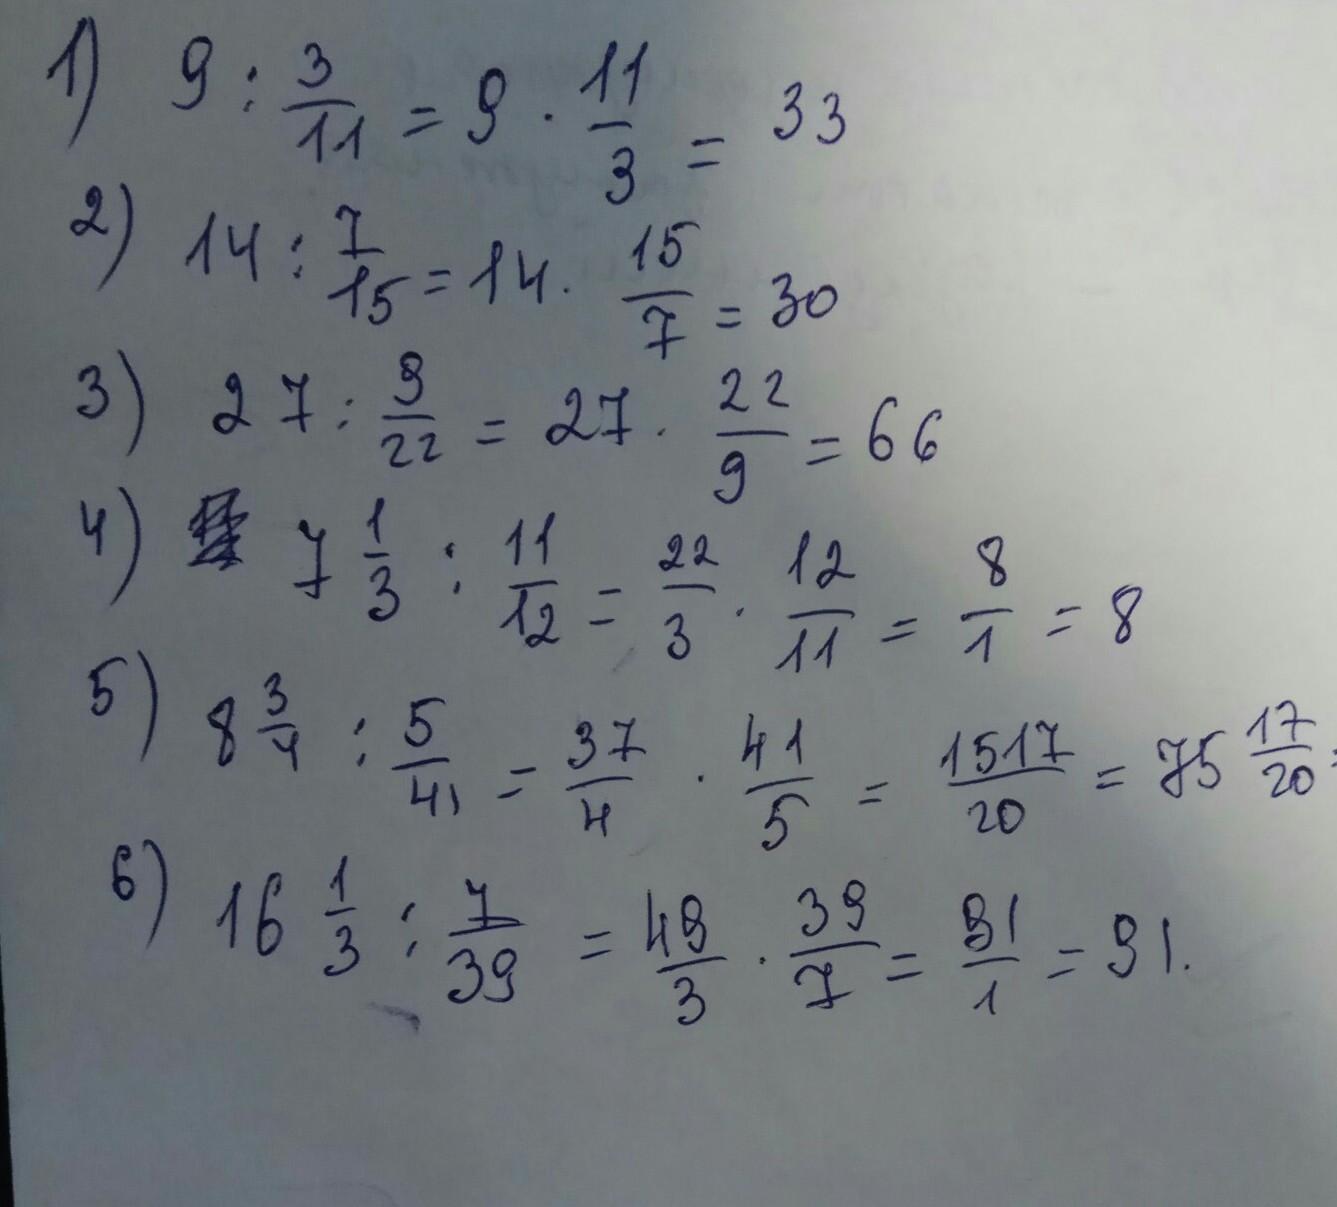 1) 9 : 3/11 = 9 · 11/3 = 33
2) 14 : 7/15 = 14 · 15/7 = 30
3) 27 : 9/22 = 27 · 22/9 = 66
4) 7 1/3 : 11/12 = 22/3 · 12/11 = 8/1 = 8
5) 8 3/4 : 5/41 = 37/4 · 41/5 = 1517/20 = 75 17/20
6) 16 1/3 : 7/39 = 49/3 · 39/7 = 91/1 = 91.